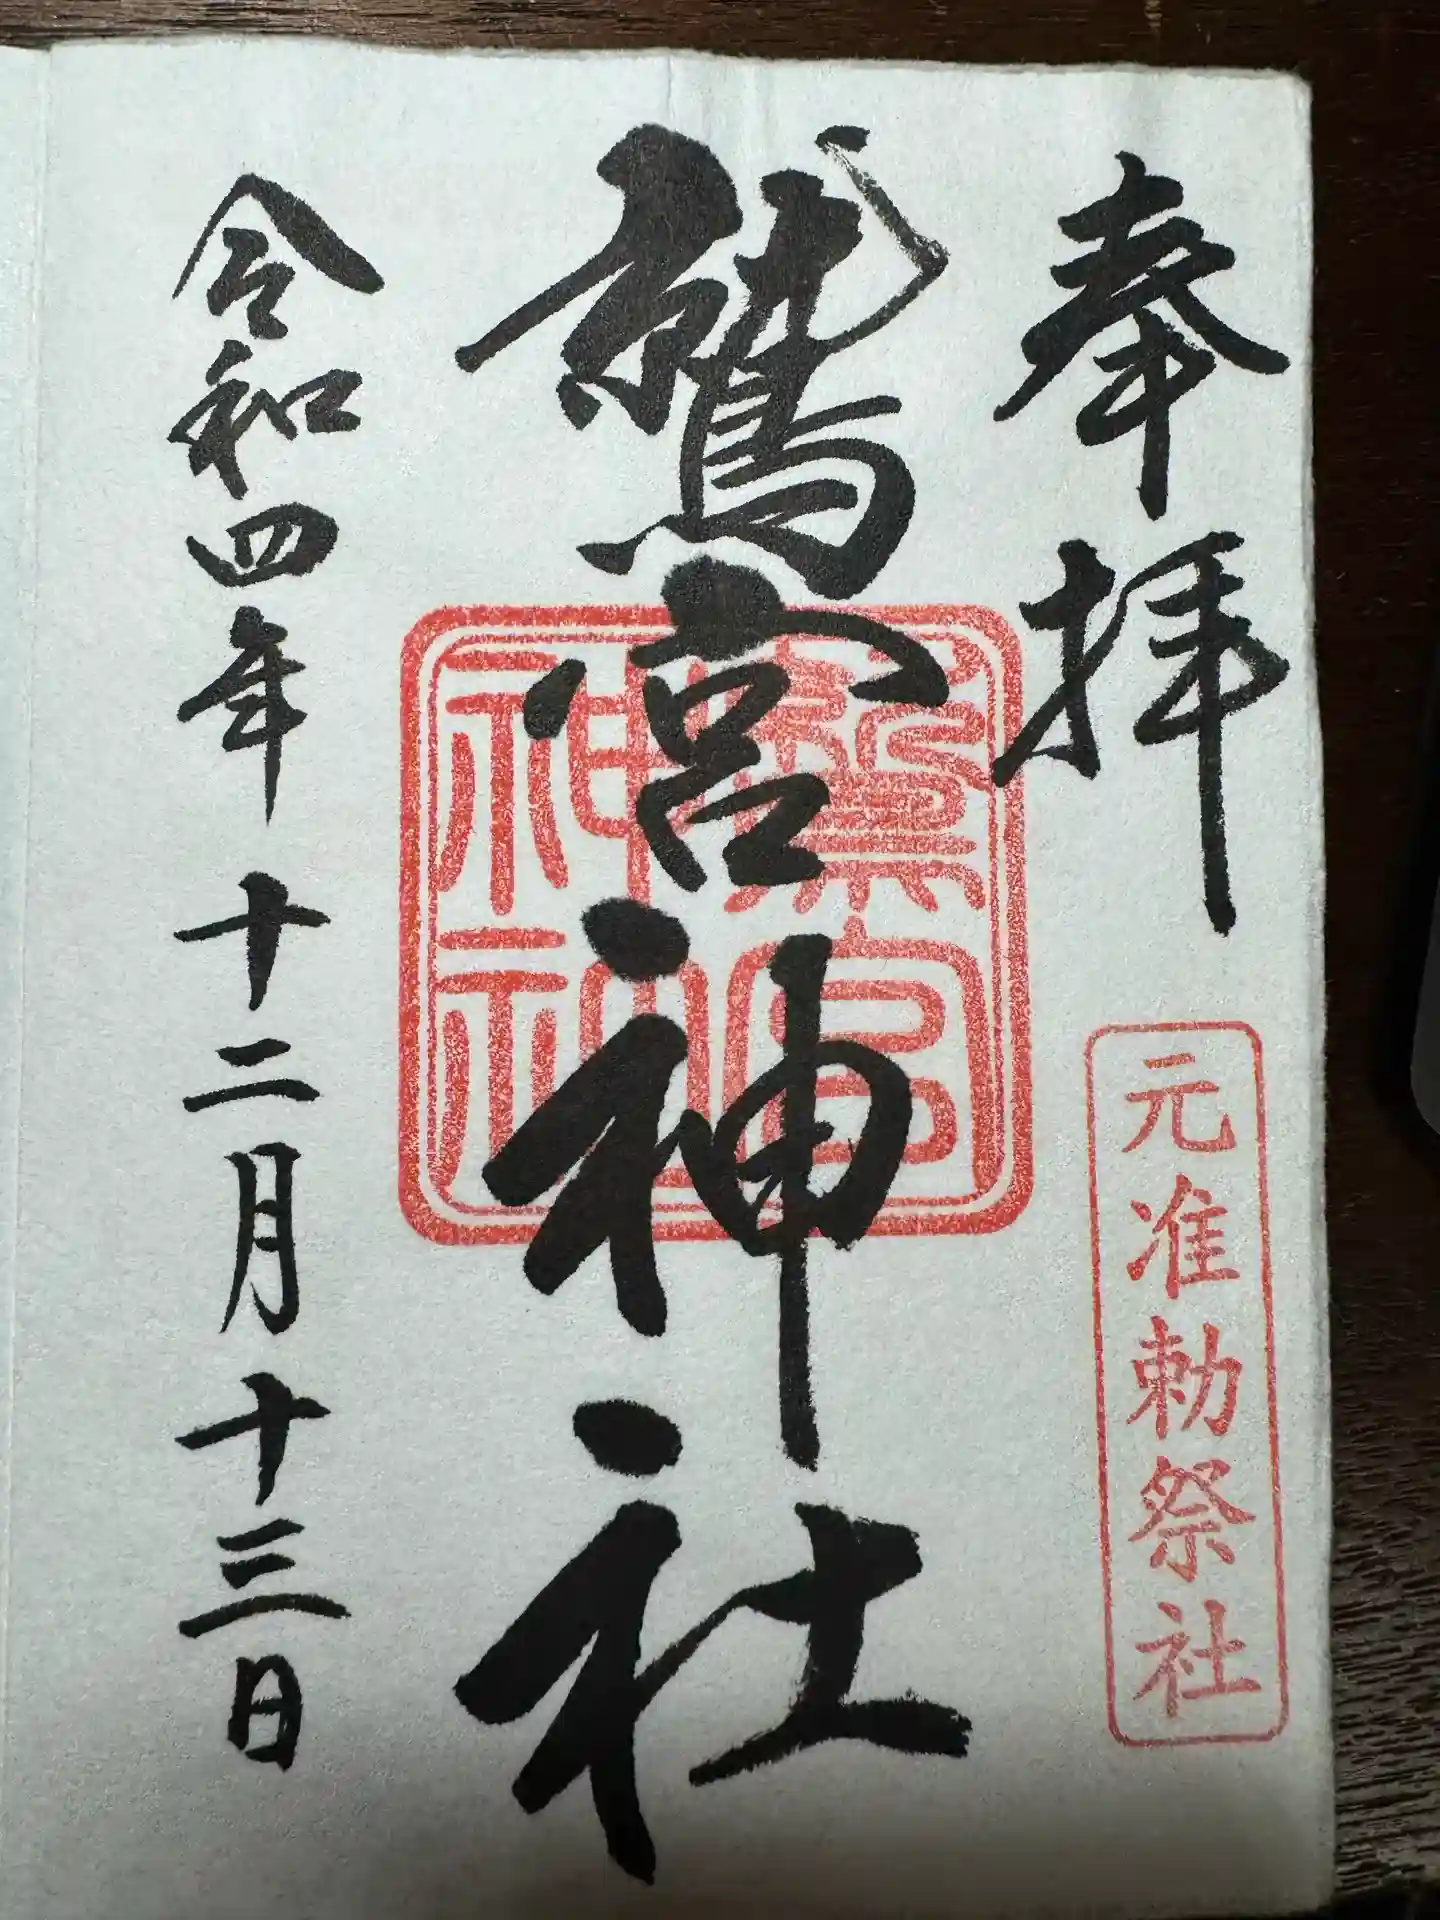 奉拝
元准勅祭社
鷲宮神社
鷲宮神社
令和四年十二月十三日